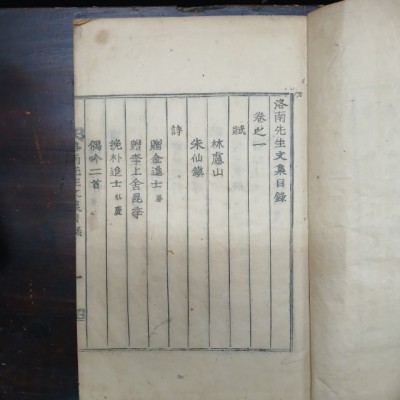 洛南先生文集目錄
卷之一
賦
林慮山
朱仙鎭
詩
贈金進士
贈李上舍
挽朴進士
偶吟二首
洛南先生文集目錄
一